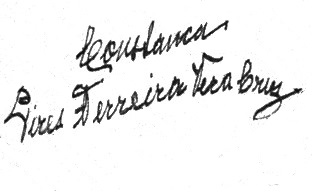 Constanca
Pires Ferreira Vera Cruz